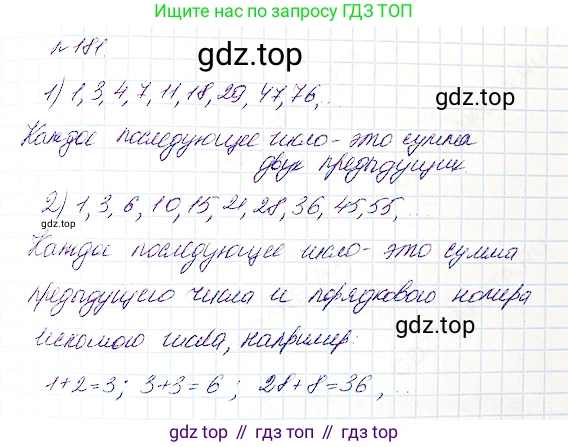 Ищите по запросу ГДЗ ТОП
gdz.top
№ 181.
1) 1, 3, 4, 7, 11, 18, 29, 47, 76, ...
gdz.top
Каждое последующее число - это сумма
двух предыдущих.
2) 1, 3, 6, 10, 15, 21, 28, 36, 45, 55, ...
gdz.top
Каждое последующее число - это сумма
предыдущего числа и порядкового номера
искомого числа, например:
gdz.top
1+2=3; 3+3=6; 28+8=36, ...
gdz.top // гдз.топ // gdz.top